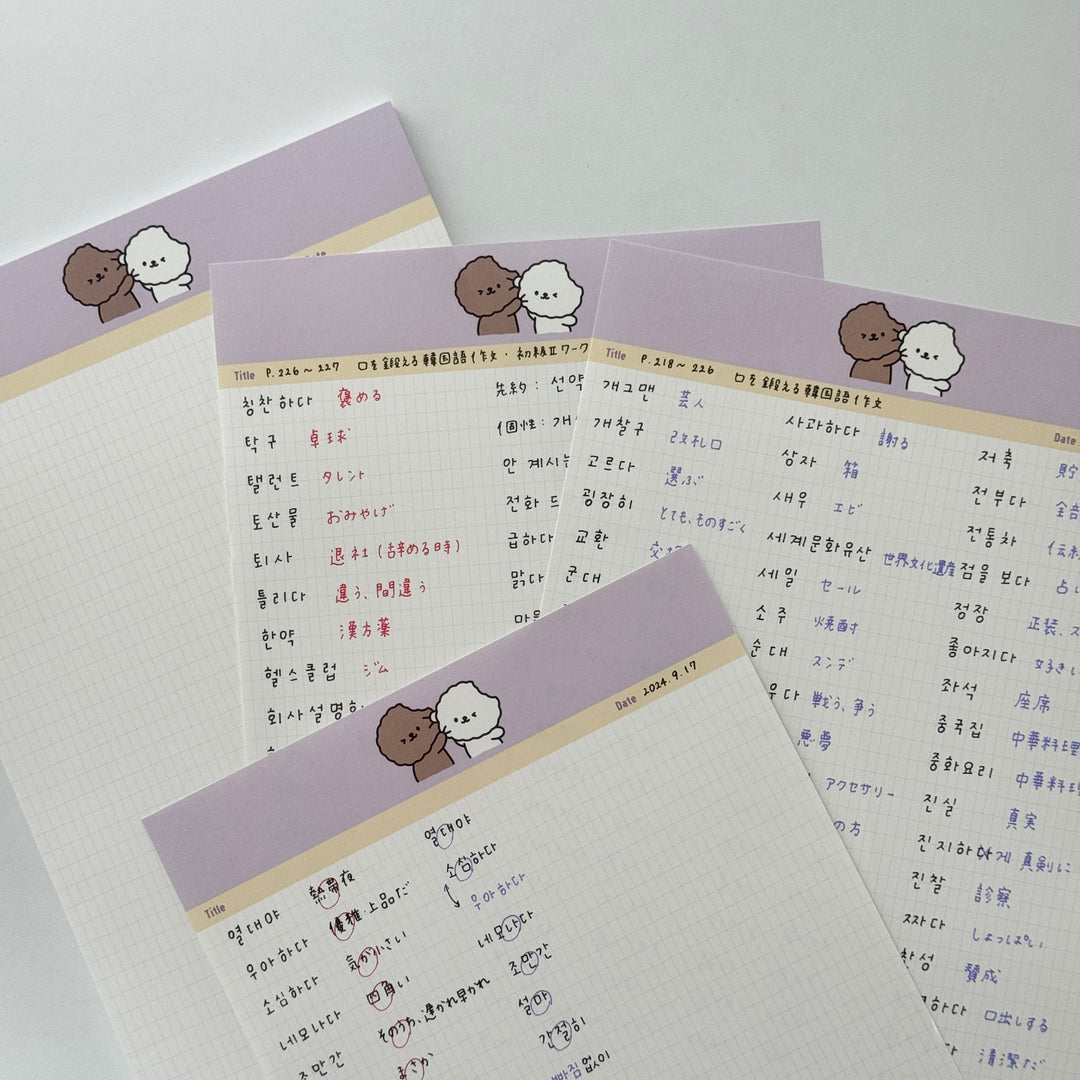 Title P.226～227 口を鍛える韓国語作文・初級Ⅱワーク
칭찬하다 褒める
탁구 卓球
탤런트 タレント
토산물 おみやげ
퇴사 退社(辞める時)
틀리다 違う、間違う
한약 漢方薬
헬스클럽 ジム
회사설명
先約: 선약
個性:
안 계시는
전화
급하다
맑다
Title P.218～226 口を鍛える韓国語作文
Date
개그맨 芸人
개찰구 改札口
고르다 選ぶ
굉장히 とても、ものすごく
교환
군대
사과하다 謝る
상자 箱
새우 エビ
세계문화유산 世界文化遺産
세일 セール
소주 焼酎
순대 スンデ
戦う、争う
悪夢
アクセサリー
の方
저축
전부다
전통차
점을 보다
정장 正装、
좋아지다
좌석 座席
중국집 中華料理
중화요리 中華料理
진실 真実
진지하게 真剣に
진찰 診察
짜다 しょっぱい
찬성 賛成
口出しする
清潔だ
Title
Date 2024.9.17
열대야 熱帯夜
우아하다 優雅・上品だ
소심하다 気が小さい
네모나다 四角い
조만간 そのうち、遅かれ早かれ
まさか
열대야
소심하다
우아하다
네모나다
조만간
설마
간절히
빠짐없이